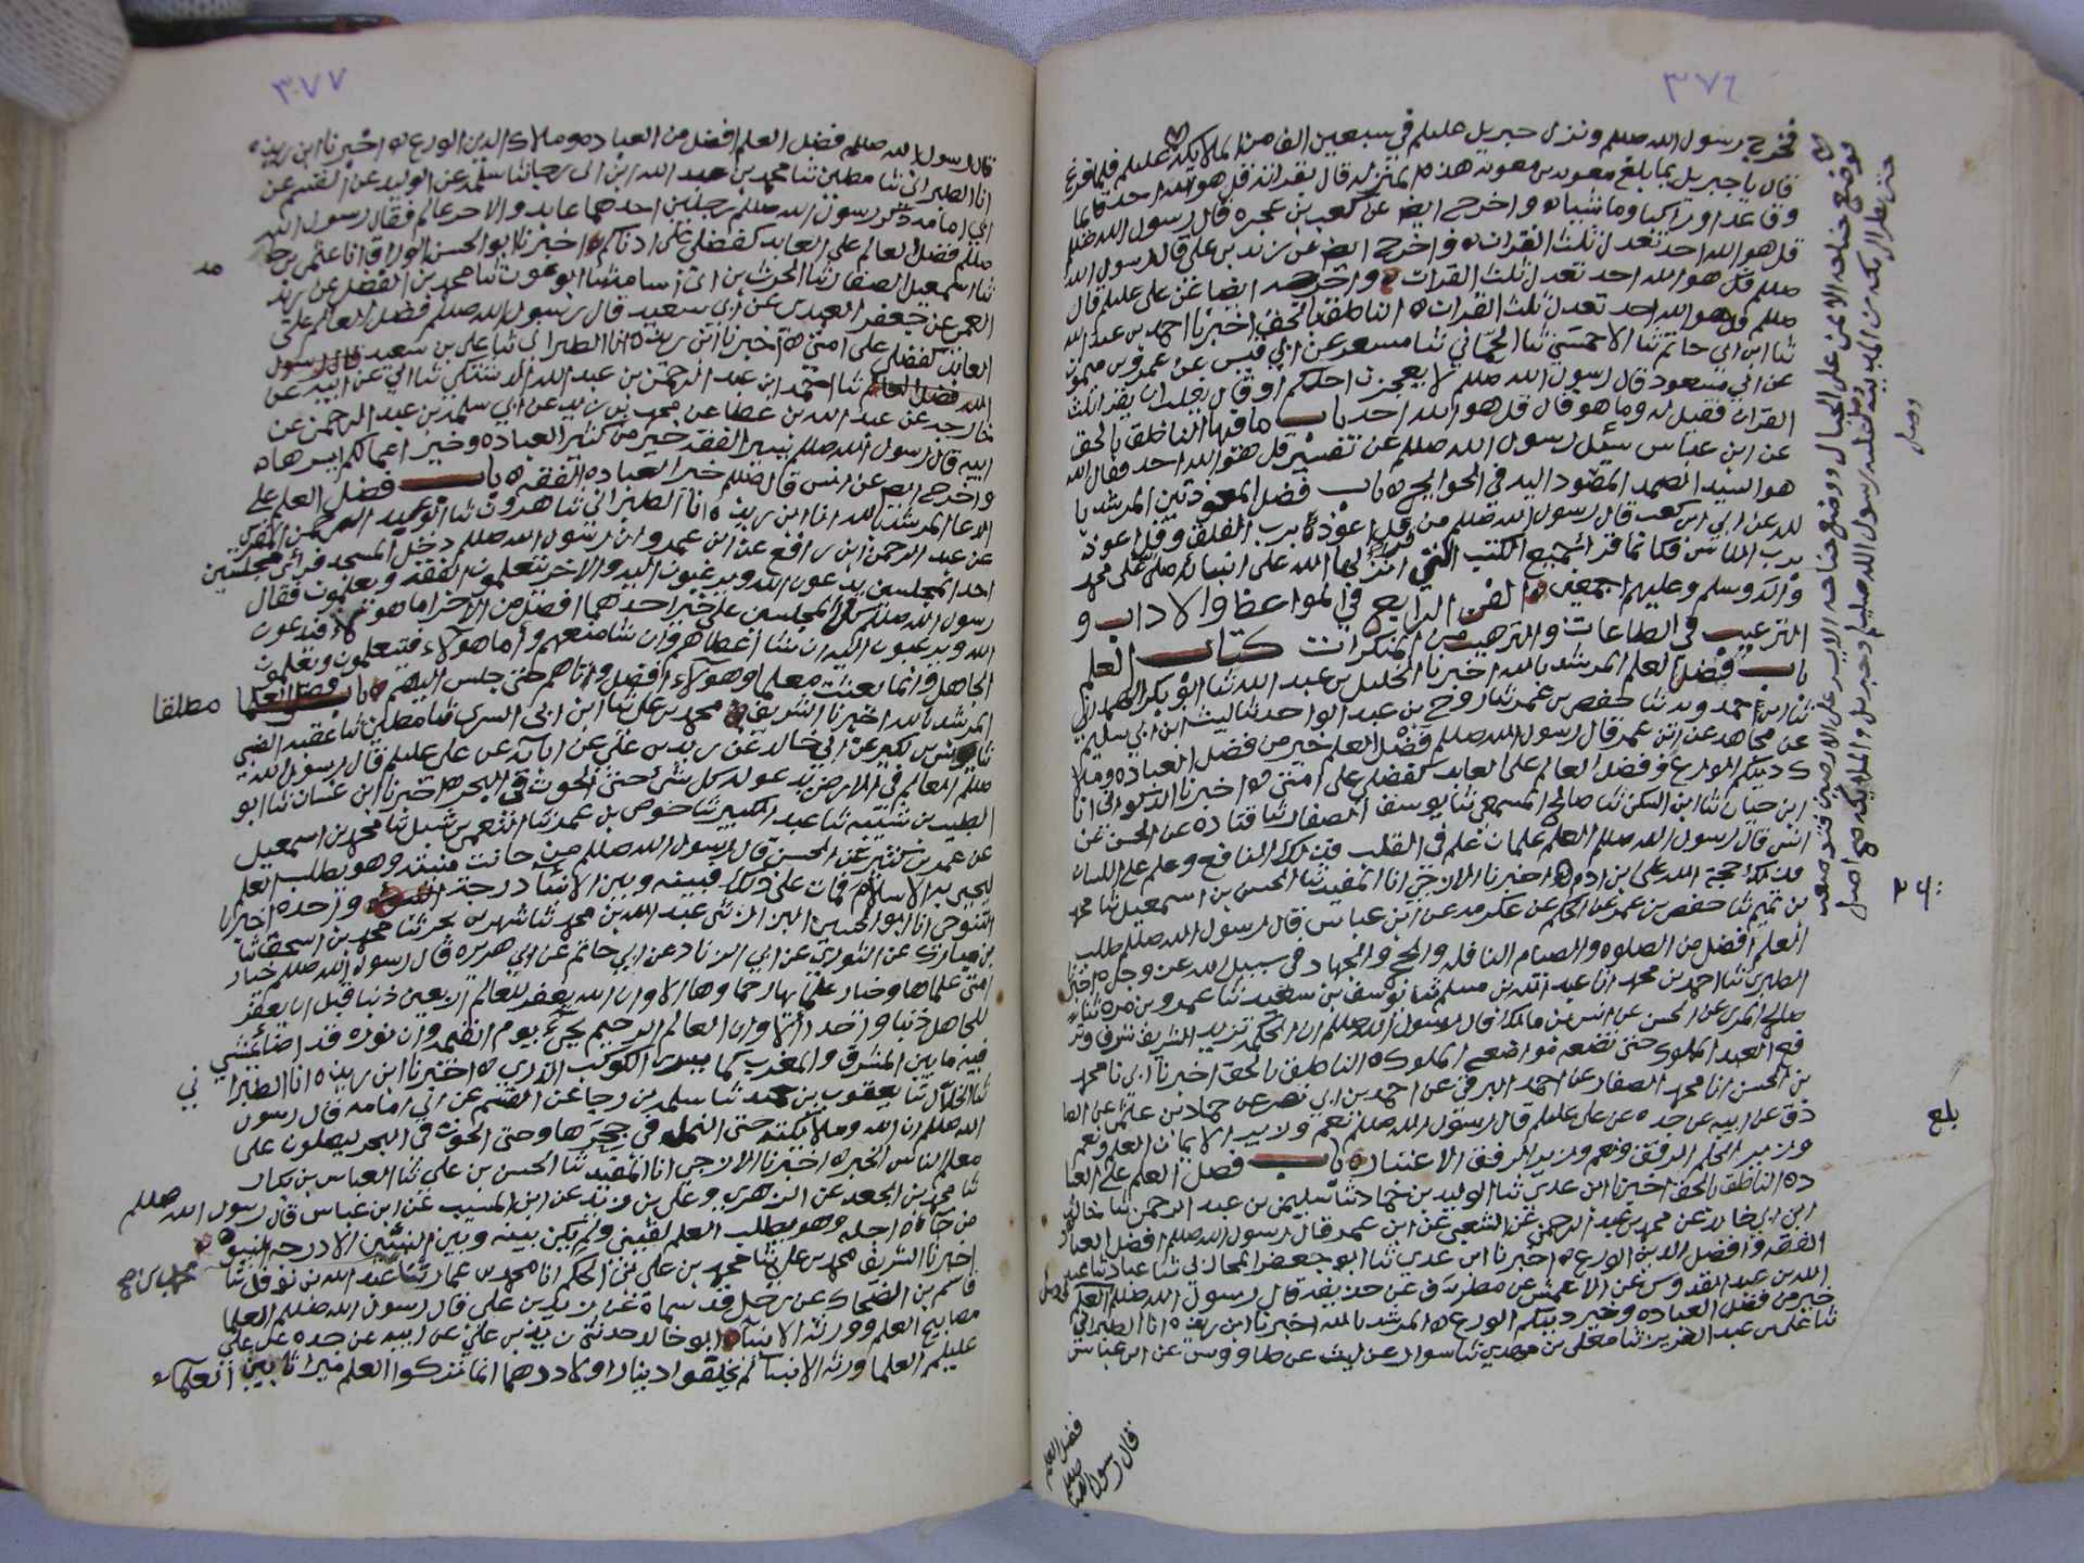 ٣٧٦
فخرج رسول الله صللم ونزل جبريل عليلم في سبعين الف من الملائكة عليلم فلما فرغ
قال يا جبريل بما بلغ معوية بن معوية هذه المنزلة قال بقراته قل هو الله احد قائما
وقاعدا وراكبا وماشيا ه واخرج ايض عن كعب بن عجره قال رسول الله صللم
قل هو الله احد تعدل ثلث القران ه واخرج ايض عن زيد بن علي قال رسول الله
صللم قل هو الله احد تعدل ثلث القران ه واخرج ايضا عن علي عليلم قال
صللم قل هو الله احد تعدل ثلث القران ه الناطق بالحق اخبرنا احمد بن عبد الله
ثنا ابن ابي حاتم ثنا الاحمسي ثنا الحماني ثنا مسعر عن ابي قيس عن عمرو بن ميمون
عن ابي مسعود قال رسول الله صللم لا يعجزن احدكم او قال يغلب ان يقرا ثلث
القران فقيل له وما هو قال قل هو الله احد باب ما فيها الناطق بالحق
عن ابن عباس سئل رسول الله صللم عن تفسير قل هو الله احد فقال الله
هو السيد الصمد المصمود اليه في الحوايج ه باب فضل المعوذتين المرشد با
لله عن ابي ابن كعب قال رسول الله صللم من قرا قل اعوذ برب الفلق وقل اعوذ
برب الناس فكانما قرا جميع الكتب التي انزلها الله على انبيائه صلى على محمد
واله وسلم وعليهم اجمعين ه الفن الرابع في المواعظ والاداب و
الترغيب في الطاعات والترهيب من المنكرات كتاب العلم
باب فضل العلم المرشد بالله اخبرنا الخليل بن عبد الله ثنا ابو بكر الصمداني
ثنا ابن حمدويه ثنا حفص بن عمر ثنا روح بن عبد الواحد ثنا ليث ابن ابي سليم
عن مجاهد عن ابن عمر قال رسول الله صللم فضل العلم خير من فضل العباده وملا
ك دينكم الورع وفضل العالم على العابد كفضلي على امتي ه اخبرنا الذكواني انا
ابن حيان ثنا ابن السكن ثنا صالح المسمعي ثنا يوسف الصفار ثنا قتاده عن الحسن عن
انس قال رسول الله صللم العلم علمان علم في القلب فذلك النافع وعلم على اللسان
فذلك حجة الله على ابن ادم ه اخبرنا الازجي انا المفيد ثنا الحسن بن اسمعيل ثنا محمد
بن تميم ثنا حفص بن عمر عن الحكم عن عكرمه عن ابن عباس قال رسول الله صللم طلب
العلم افضل من الصلوه والصيام النافله والحج والجهاد في سبيل الله عز وجل ه اخبرنا
الطبري ثنا احمد بن محمد انا عبد الله بن مسلم ثنا يوسف بن سعيد ثنا عمرو بن مره ثنا
صالح المري عن الحسن عن انس بن مالك قال رسول الله صللم ان الحكمه تزيد الشريف شرفا وتر
فع العبد المملوك حتى تضعه مواضع الملوك ه الناطق بالحق اخبرنا ابي نا محمد
بن الحسن انا محمد الصفار عن احمد البرقي عن احمد بن ابي نصر عن حماد بن عثمن عن الصا
دق عن ابيه عن جده عن علي عليلم قال رسول الله صللم نعم وزير الايمان العلم ونعم
وزير الحلم الرفق ونعم وزير الرفق الاعتبار ه باب فضل العلم على العبا
ده الناطق بالحق اخبرنا ابن عدي ثنا الوليد بن حماد ثنا سليمن بن عبد الرحمن ثنا خالد
ابن ابي خالد عن محمد بن عبد الرحمن عن الشعبي عن ابن عمر قال رسول الله صللم افضل العباده
الفقه وافضل الدين الورع ه اخبرنا ابن عدي ثنا ابو جعفر ثنا عباد ثنا عبد
الله بن عبد القدوس عن الاعمش عن مطرف عن حذيفه قال رسول الله صللم فضل العلم
خير من فضل العباده وخير دينكم الورع ه المرشد بالله اخبرنا ابن ريذه انا الطبراني
ثنا علي بن عبد العزيز ثنا معلى بن مهدي ثنا سوار عن ليث عن طاووس عن ابن عباس
فوضع جناحه الايمن على الجبال ووضع جناحه الايسر على الارضين فتواضعت
حتى نظر الى مكه من المدينه فصلى عليه رسول الله صللم وجبريل والملايكه صح اصل
بلغ
فضل العلم
قال رسول الله صللم
٣٧٧
قال رسول الله صللم فضل العلم افضل من العباده وملاك الدين الورع ه اخبرنا ابن ريذه
انا الطبراني ثنا مطين ثنا محمد بن عبد الله ابن ابي رجا ثنا سلمه عن الوليد عن القسم عن
ابي امامه ذكر رسول الله صللم رجلين احدهما عابد والاخر عالم فقال رسول الله
صللم فضل العالم على العابد كفضلي على ادناكم ه اخبرنا ابو الحسن الوراق انا عثمن بن
ثنا اسمعيل الصفار ثنا الحرث بن ابي اسامه ثنا ابو عون ثنا محمد بن الفضل عن زيد
العمي عن جعفر العبدي عن ابي سعيد قال رسول الله صللم فضل العالم على
العابد كفضلي على امتي ه اخبرنا ابن ريذه انا الطبراني ثنا علي بن سعيد
ثنا احمد ابن عبد الرحمن بن عبد الله الدشتكي ثنا ابي عن ابيه عن
خارجه عن عبد الله بن عطا عن محمد بن زيد عن ابي سلمه بن عبد الرحمن عن
ابيه قال رسول الله صللم يسير الفقه خير من كثير العباده وخير اعمالكم ايسرها ه
واخرج ايض عن انس قال صللم خير العباده الفقه ه باب فضل العلم على
الدعا المرشد بالله انا ابن ريذه انا الطبراني ثنا هرون ثنا ابو عبد الرحمن المقري
عن عبد الرحمن ابن رافع عن ابن عمرو ان رسول الله صللم دخل المسجد فراى مجلسين
احد المجلسين يدعون الله ويرغبون اليه والاخر يتعلمون الفقه ويعلمون فقال
رسول الله صللم كلا المجلسين على خير احدهما افضل من الاخر اما هولاء فيدعون
الله ويرغبون اليه ان شا اعطاهم وان شا منعهم واما هولاء فيتعلمون ويعلمون
الجاهل وانما بعثت معلما وهولاء افضل واتاهم حتى جلس اليهم ه باب فضل العلما مطلقا
المرشد بالله اخبرنا الشريف محمد بن علي ثنا ابن ابي السري ثنا مطين ثنا عقبه الضبي
ثنا يونس بن بكير عن ابي خالد عن زيد بن علي عن ابائه عن علي عليلم قال رسول الله
صللم العالم في الارض يدعو له كل شئ حتى الحوت في البحر ه اخبرنا ابن غسان ثنا ابو
الطيب بن شيبه ثنا عبد الكبير ثنا حوض بن عمر ثنا النعمن بن شبل ثنا محمد بن اسمعيل
عن عمر بن كثير عن الحسن قال رسول الله صللم من حانت منيته وهو يطلب العلم
ليحيي به الاسلام فمات على ذلك فبينه وبين الانبيا درجة واحده اخبرنا
التنوخي انا ابو الحسين عبد الله بن محمد ثنا شهر بن بحر ثنا محمد بن اسحق ثنا
بن مبارك عن الثوري عن ابي الزناد عن ابي حازم عن ابي هريره قال رسول الله صللم خيار
امتي علماها وخيار علماها رحماوها الا وان الله يغفر للعالم اربعين ذنبا قبل ان يغفر
للجاهل ذنبا واحدا الا وان العالم الرحيم يجيء يوم القيمه وان نوره قد اضا يمشي
فيه ما بين المشرق والمغرب كما يسري الكوكب الدري ه اخبرنا ابن ريذه انا الطبراني
ثنا الخلال ثنا يعقوب بن حميد ثنا سلمه بن رجا عن القسم عن ابي امامه قال رسول
الله صللم ان الله وملائكته حتى النمله في جحرها وحتى الحوت في البحر ليصلون على
معلم الناس الخير ه اخبرنا الازجي انا المفيد ثنا الحسن بن علي ثنا العباس بن بكار
ثنا محمد بن الجعد عن الزهري وعلي بن زيد عن ابن المسيب عن ابن عباس قال رسول الله صللم
من جاءه اجله وهو يطلب العلم لقيني ولم يكن بينه وبين النبيين الا درجه النبوه
اخبرنا الشريف محمد بن علي ثنا محمد بن علي بن الحكم انا محمد بن عمار ثنا عبد الله بن نوفل ثنا
قاسم بن الضحاك عن رجل قد سماه عن زيد بن علي قال رسول الله صللم العلما
مصابيح العلم وورثة الانبيا ه ابو خالد حدثني زيد بن علي عن ابيه عن جده عن علي
عليلم العلما ورثه الانبيا لم يخلفوا دينارا ولا درهما انما تركوا العلم ميراثا بين العلما